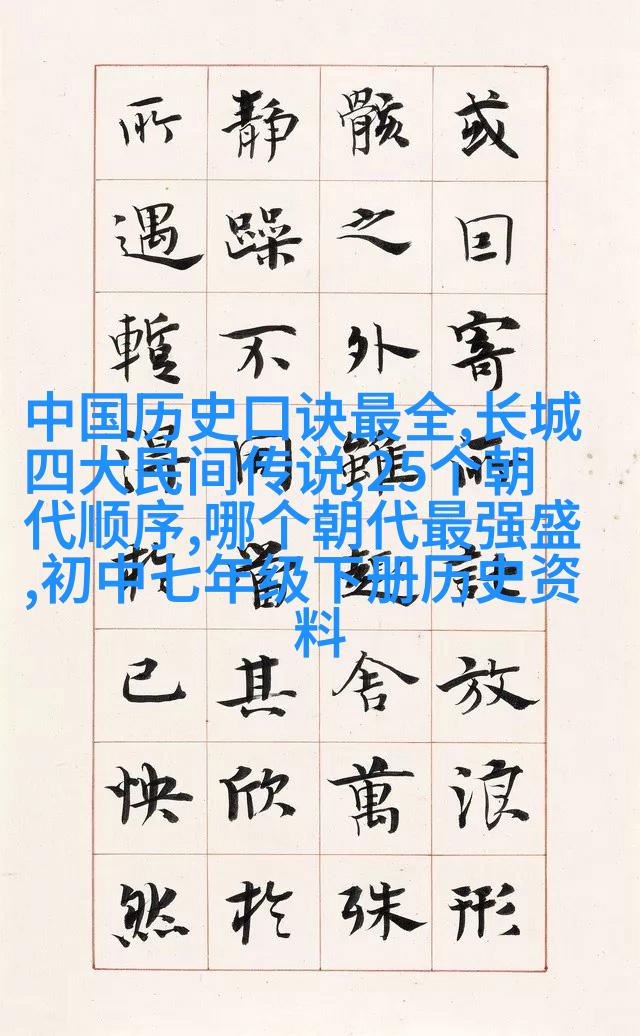 中国历史口诀最全,长城
四大民间传说,25个朝
代顺序,哪个朝代最强盛
,初中七年级下册历史资
料
或因寄所託放浪形
骸之外雖趣舍萬殊
靜躁不同當其欣於
所遇暫得於己怏然